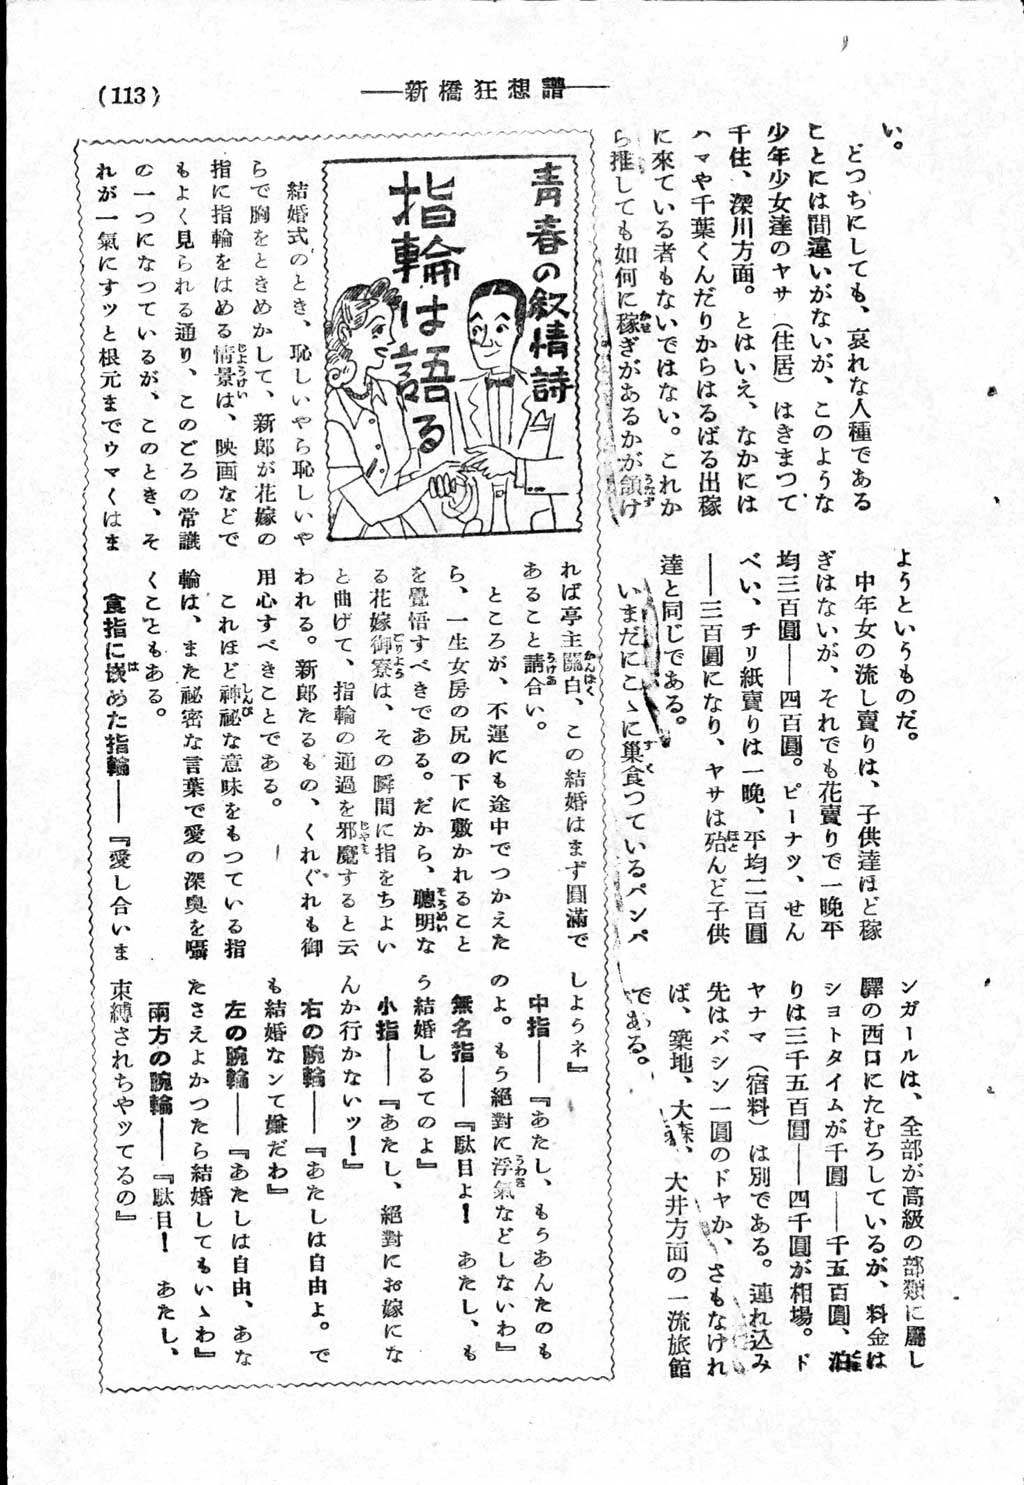 (113)
新橋狂想譜
い。
どつちにしても、哀れな人種である
ことには間違いがないが、このような
少年少女達のヤサ（住居）はきまつて
千住、深川方面。とはいえ、なかには
ハマや千葉くんだりからはるばる出稼
に來ている者もないではない。これか
ら推しても如何に稼ぎがあるかが頷け
ようというものだ。
中年女の流し賣りは、子供達ほど稼
ぎはないが、それでも花賣りで一晩平
均三百圓――四百圓。ピーナツ、せん
べい、チリ紙賣りは一晩、平均二百圓
――三百圓になり、ヤサは殆んど子供
達と同じである。
いまだにこゝに巣食つているパンパ
ンガールは、全部が高級の部類に屬し
驛の西口にたむろしているが、料金は
シヨトタイムが千圓――千五百圓、泊
りは三千五百圓――四千圓が相場。ド
ヤナマ（宿料）は別である。連れ込み
先はバシン一圓のドヤか、さもなけれ
ば、築地、大森、大井方面の一流旅館
である。
青春の叙情詩
指輪は語る
結婚式のとき、恥しいやら恥しいや
らで胸をときめかして、新郎が花嫁の
指に指輪をはめる情景は、映画などで
もよく見られる通り、このごろの常識
の一つになつているが、このとき、そ
れが一氣にすッと根元までウマくはま
れば亭主關白、この結婚はまず圓滿で
あること請合い。
ところが、不運にも途中でつかえた
ら、一生女房の尻の下に敷かれること
を覺悟すべきである。だから、聰明な
る花嫁御寮は、その瞬間に指をちよい
と曲げて、指輪の通過を邪魔すると云
われる。新郎たるもの、くれぐれも御
用心すべきことである。
これほど神祕な意味をもつている指
輪は、また祕密な言葉で愛の深奥を囁
くこともある。
食指に嵌めた指輪――『愛し合いま
しようネ』
中指――『あたし、もうあんたのも
のよ。もう絕對に浮氣などしないわ』
無名指――『駄目よ！　あたし、も
う結婚しるてのよ』
小指――『あたし、絕對にお嫁にな
んか行かないッ！』
右の腕輪――『あたしは自由よ。で
も結婚なンて嫌だわ』
左の腕輪――『あたしは自由、あな
たさえよかつたら結婚してもいゝわ』
兩方の腕輪――『駄目！　あたし、
束縛されちやッてるの』